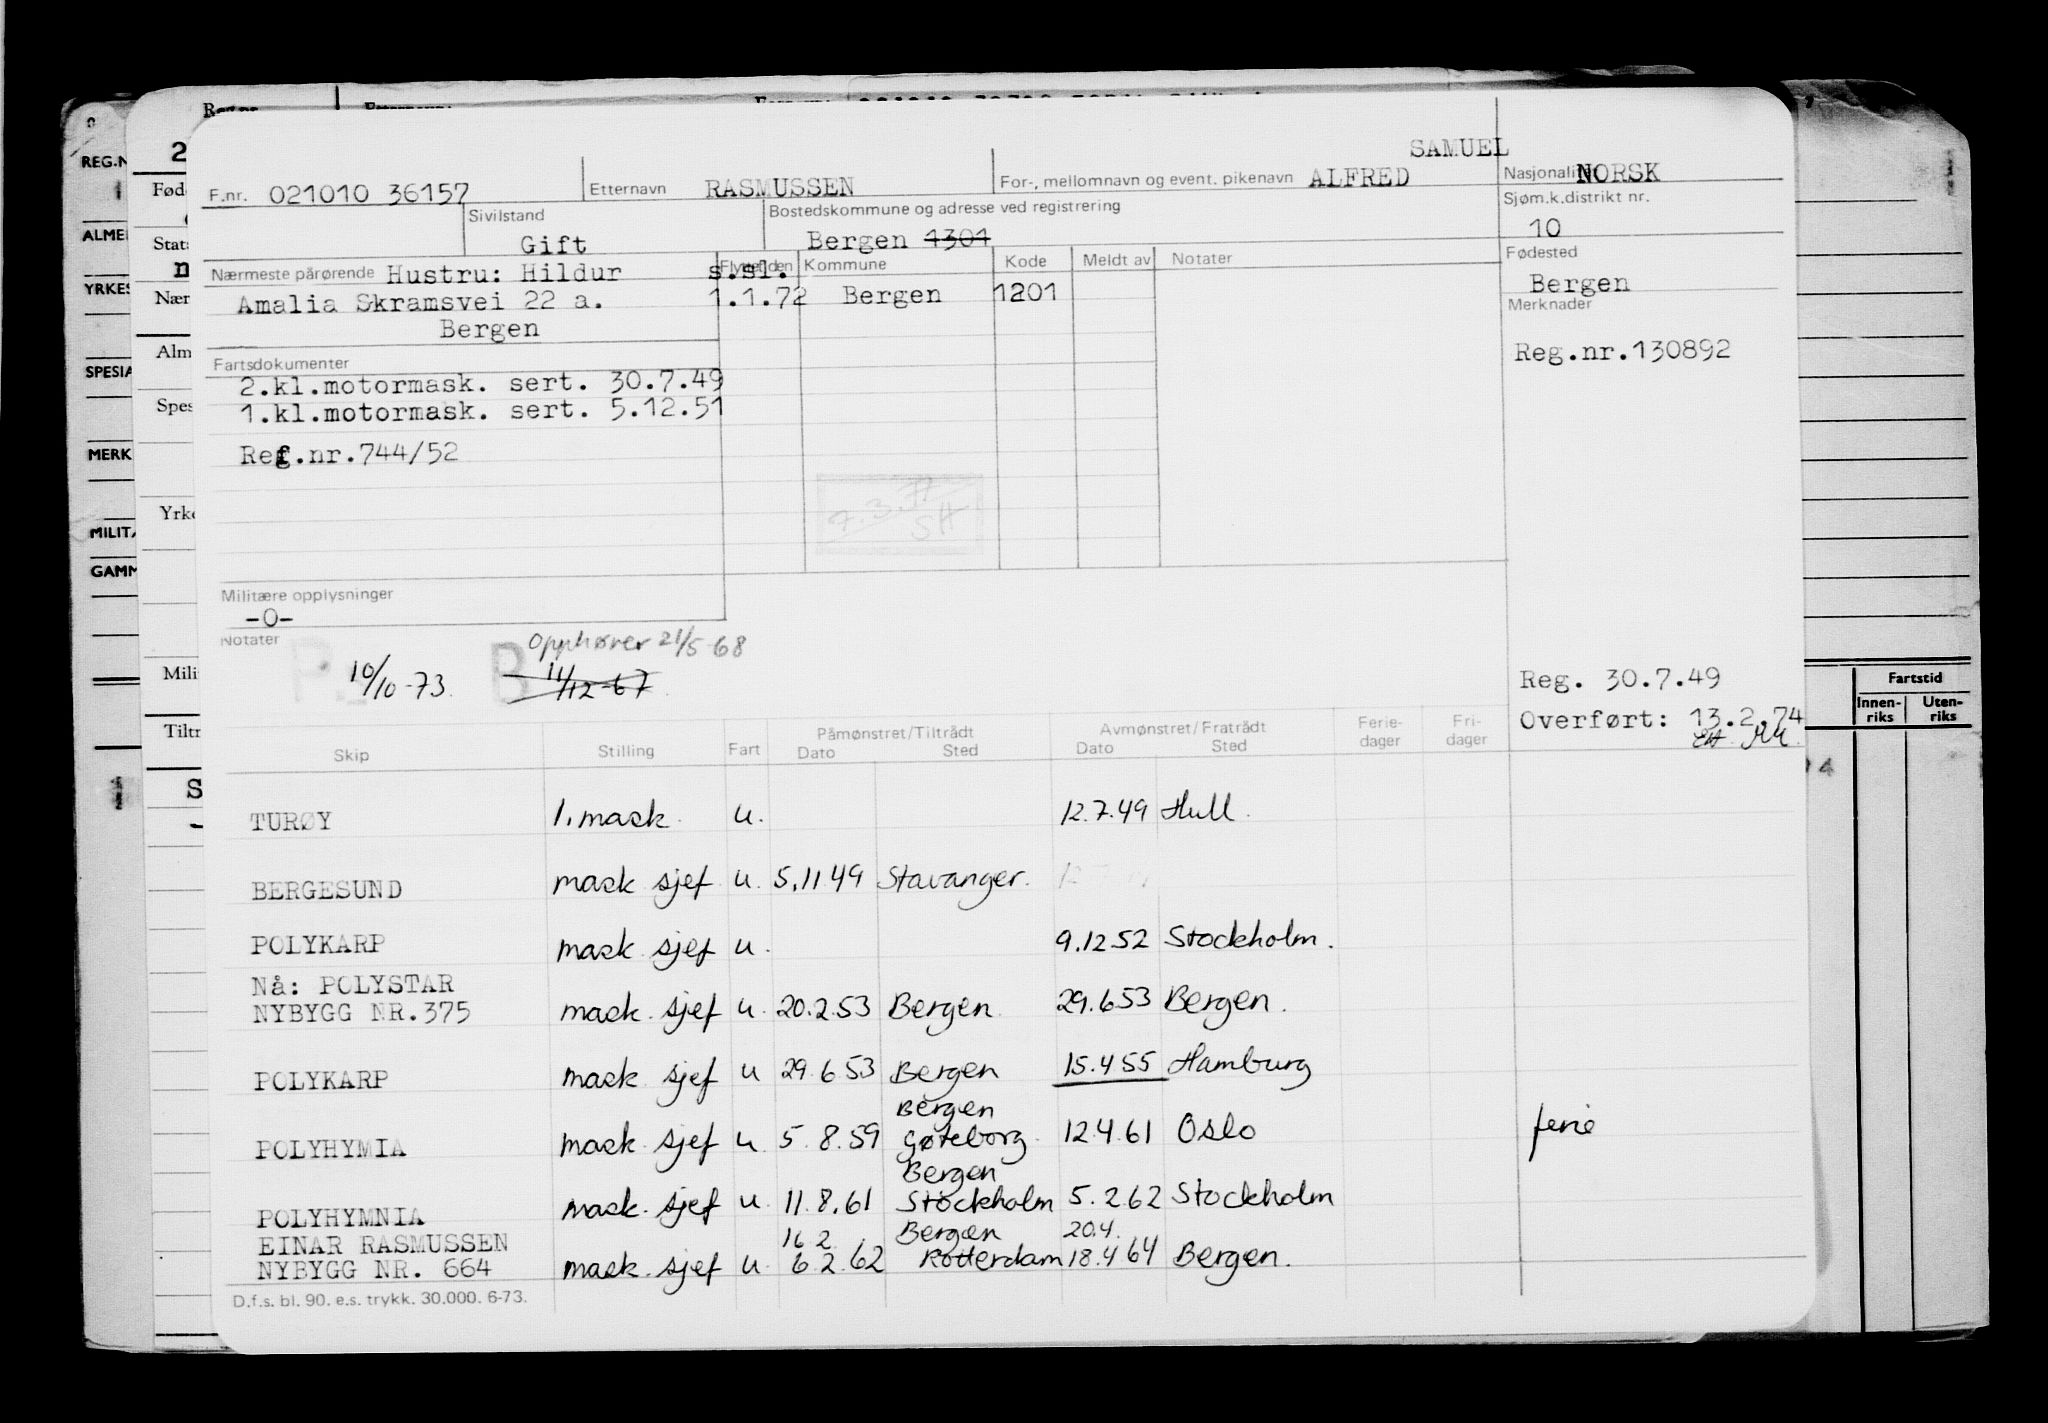 SAMUEL
F.nr. 021010 36157 Etternavn RASMUSSEN For-, mellomnavn og event. pikenavn ALFRED Nasjonalitet NORSK
Sivilstand Gift Bostedskommune og adresse ved registrering Bergen 1301 Sjøm.k.distrikt nr. 10
Nærmeste pårørende Hustru: Hildur s.sl. Kommune Kode Meldt av Notater Fødested
Amalia Skramsvei 22 a. 1.1.72 Bergen 1201 Bergen
Bergen Merknader
Fartsdokumenter Reg.nr.130892
2.kl.motormask. sert. 30.7.49
1.kl.motormask. sert. 5.12.51
Ref.nr.744/52
7.3.77
SH
Militære opplysninger
-0-
Notater
P. 10/10-73. B Opphører 21/5-68
11/12-67
Reg. 30.7.49
Overført: 13.2.74
Skip Stilling Fart Påmønstret/Tiltrådt Dato Sted Avmønstret/Fratrådt Dato Sted Ferie-dager Fri-dager
TURØY 1. mask. u. 12.7.49 Hull.
BERGESUND mask sjef u. 5.11 49 Stavanger.
POLYKARP mask sjef u. 9.12 52 Stockholm.
Nå: POLYSTAR
NYBYGG NR.375 mask. sjef u. 20.2.53 Bergen. 29.6 53 Bergen.
POLYKARP mask. sjef u 29.6 53 Bergen 15.4 55 Hamburg
Bergen
POLYHYMIA mask. sjef u. 5.8.59 Gøteborg. 12.4.61 Oslo ferie
Bergen
POLYHYMNIA mask. sjef u. 11.8.61 Stockholm 5.2.62 Stockholm
EINAR RASMUSSEN 16 2 Bergen 20.4.
NYBYGG NR. 664 mask. sjef u. 6.2.62 Rotterdam 18.4 64 Bergen.
D.f.s. bl. 90. e.s. trykk. 30.000. 6-73.
REG.N
ALME
YRKES
SPESIA
MERK
MILITÆ
GAMM
Fød
Stat
Nær
Alm
Spes
Yrke
Mili
Tiltr
Fartstid
Innen-riks Uten-riks